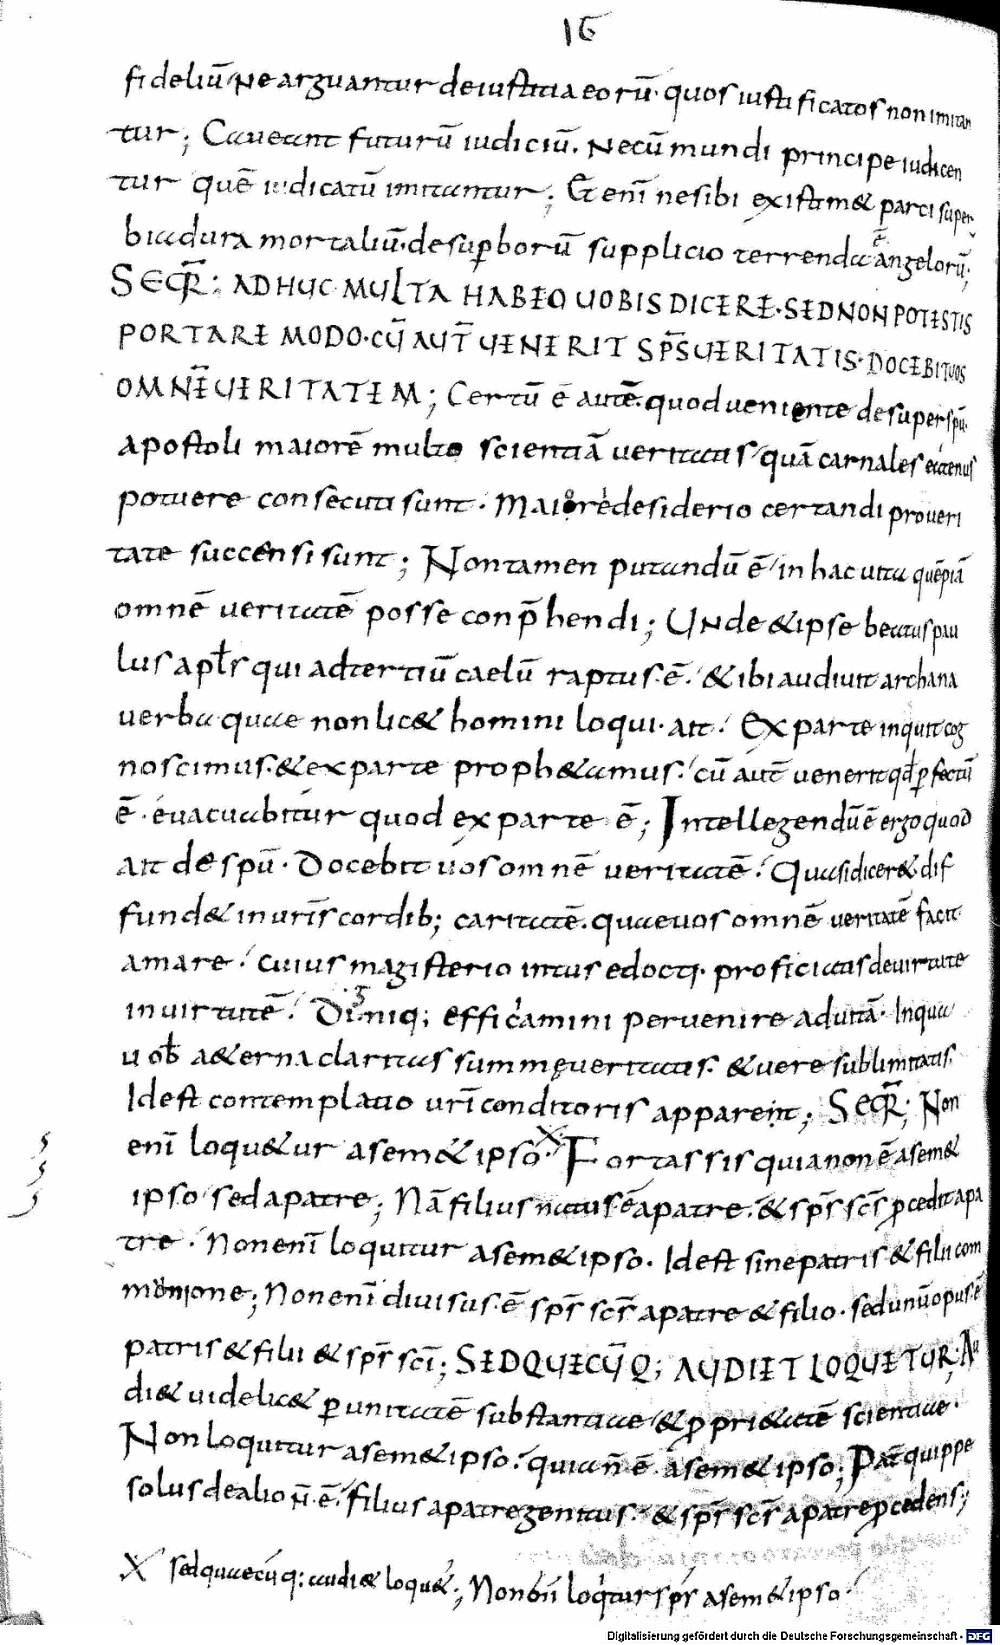 16
fideliū. Ne arguantur de iustitia eorū. quos iustificatos non imitan
tur; Caveant futurū iudiciū. Ne cū mundi principe iudicen
tur quē iudicatū imitantur; Et enī ne sibi existim& parci super
bia dura mortaliū. de suꝑborū supplicio terrenda ē angelorū;
SEQR̄; ADHUC MULTA HABEO UOBIS DICERE. SED NON POTESTIS
PORTARE MODO. CŪ AUT̄ UENERIT SP̄S UERITATIS. DOCEBIT UOS
OMNĒ UERITATEM; Certū ē autē. quod veniente desuper spū.
apostoli maiorē multo scientiā veritatis quā carnales eatenus
potuere consecuti sunt. Maiore desiderio certandi pro veri
tate succensi sunt; Non tamen putandū ē in hac uita quēpiā
omnē veritatē posse conp̄hendi; Unde & ipse beatus pau
lus apl̄s qui ad tertiū caelū raptus. ē. & ibi audivit archana
verba quae non lic& homini loqui. ait. Ex parte inquit cog
noscimus. & ex parte proph&amus. cū aut̄ venerit qd̄ ꝑfectū
ē. evacuabitur quod ex parte ē; Intellegendū ē ergo quod
ait de spū. Docebit vos omnē veritatē. Quasi dicer& dif
fund& in ur̄is cordib; caritatē. quae vos omnē veritatē facit
amare. Cuius magisterio intus edocti. proficiatis de virtute
in virtutē. Di niq; efficamini pervenire ad uitā. In qua
uob̄ a&erna claritas summę veritatis. & vere sublimitatis.
Id est contemplatio ur̄i conditoris appareat; SEQR̄; Non
enī loqu&ur a sem&ipso. X Fortassis quia non ē a sem&
ipso sed a patre; Nā filius natus ē a patre. & sp̄s sc̄s ꝓcedit a pa
tre. Non enī loquitur a sem&ipso. Id est sine patris & filii com
monione; Non enī divisus. ē sp̄s sc̄s a patre & filio. sed unū opus. ē
patris & filii & sp̄s sc̄i; SED QUECŪQ; AUDIET LOQUETUR; Au
di& videlic& ꝑ unitatē substantiae & ꝓpri&atē scientiae.
Non loquitur a sem&ipso. quia n̄ ē a sem&ipso; Pat̄ quippe
solus de alio n̄ ē. filius a patre genitus. & sp̄s sc̄s a patre ꝓcedens;
X sed quaecūq: audi& loqu&; Non enī loqitur sp̄s a sem&ipso.
Digitalisierung gefördert durch die Deutsche Forschungsgemeinschaft - DFG